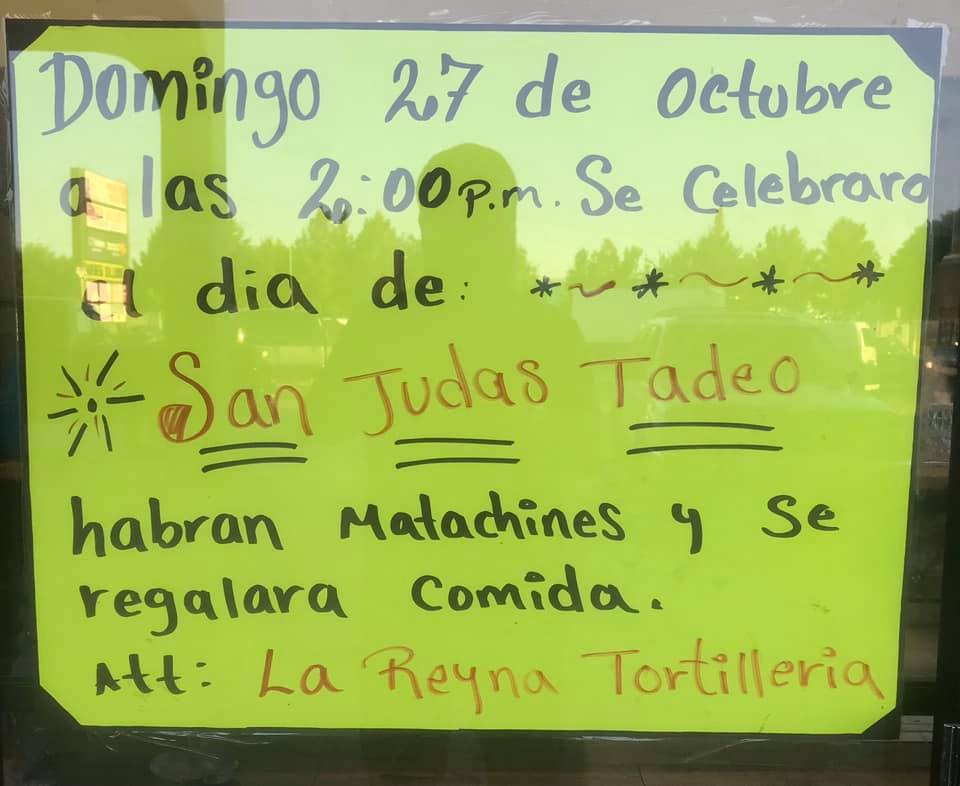 Domingo 27 de Octubre
a las 2:00 p.m. Se Celebrara
el dia de:
San Judas Tadeo
habran Matachines y Se
regalara Comida.
Att: La Reyna Tortilleria